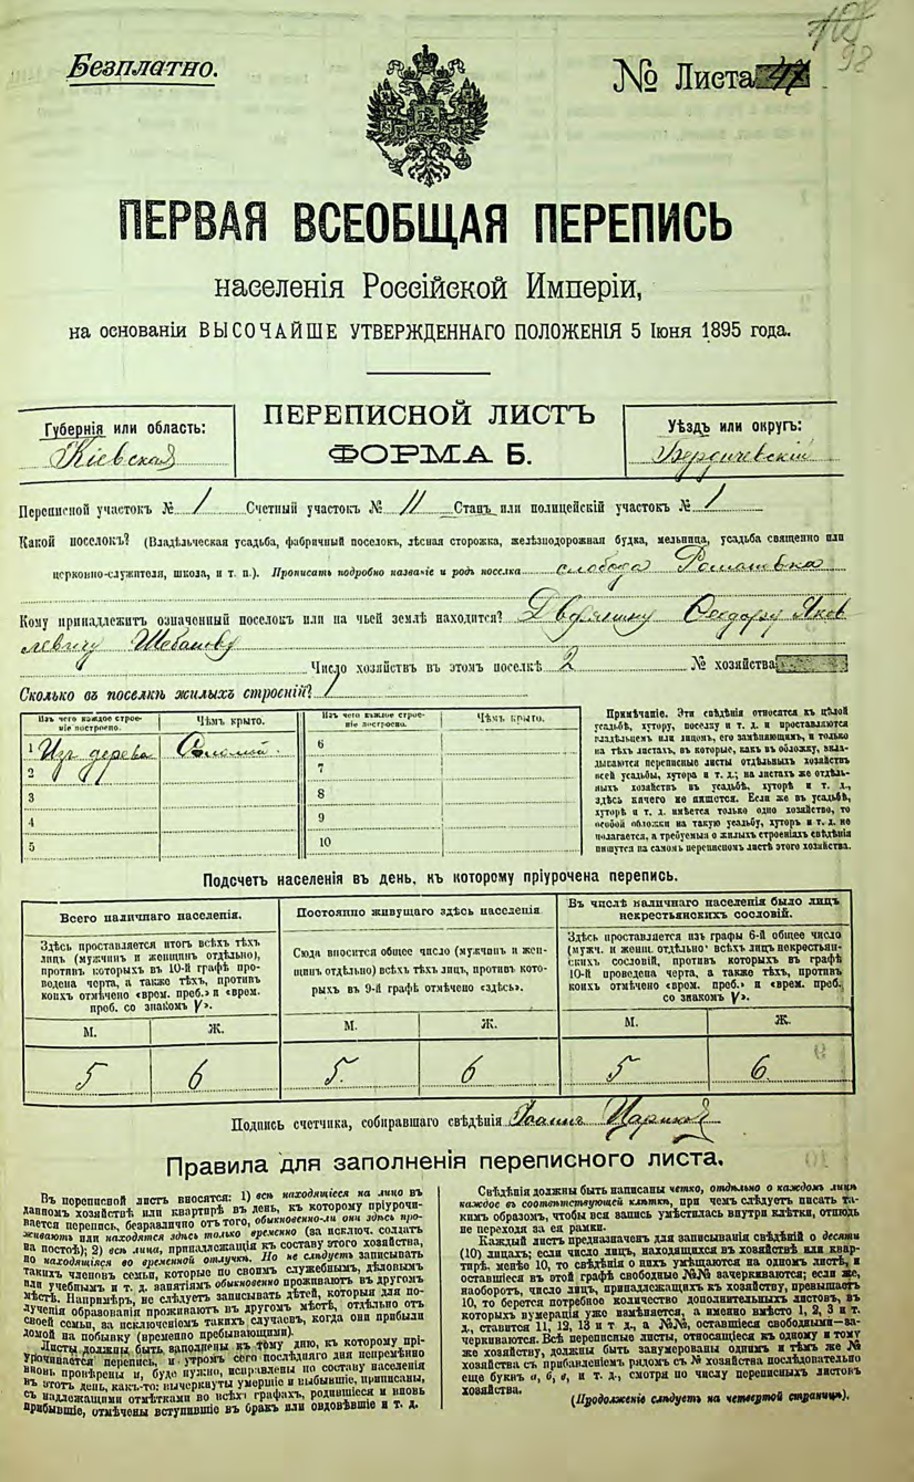 Безплатно.
№ Листа 47
98
ПЕРВАЯ ВСЕОБЩАЯ ПЕРЕПИСЬ
населенія Россійской Имперіи,
на основаніи ВЫСОЧАЙШЕ УТВЕРЖДЕННАГО ПОЛОЖЕНІЯ 5 Іюня 1895 года.
Губернія или область:
Кіевская
ПЕРЕПИСНОЙ ЛИСТЪ
ФОРМА Б.
Уѣздъ или округъ:
Бердичевскій
Переписной участокъ № 1 Счетный участокъ № 11 Станъ или полицейскій участокъ № 1
Какой поселокъ? (Владѣльческая усадьба, фабричный поселокъ, лѣсная сторожка, желѣзнодорожная будка, мельница, усадьба священно или
церковно-служителя, школа, и т. п.). Прописать подробно названіе и родъ поселка слобода Ромашевка
Кому принадлежитъ означенный поселокъ или на чьей землѣ находится? Дворянину Ѳеодору Яков
левичу
Число хозяйствъ въ этомъ поселкѣ 2 № хозяйства
Сколько въ поселкѣ жилыхъ строеній? 1
Изъ чего каждое строе-
ніе построено.
Чѣмъ крыто.
Изъ чего каждое строе-
ніе построено.
Чѣмъ крыто.
1 Изъ дерева Соломой.
2
3
4
5
6
7
8
9
10
Примѣчаніе. Эти свѣдѣнія относятся къ цѣлой
усадьбѣ, хутору, поселку и т. д. и проставляются
владѣльцемъ или лицомъ, его замѣняющимъ, и только
на тѣхъ листахъ, въ которые, какъ въ обложку, вкла-
дываются переписные листы отдѣльныхъ хозяйствъ
всей усадьбы, хутора и т. д.; на листахъ же отдѣль-
ныхъ хозяйствъ въ усадьбѣ, хуторѣ и т. д.,
здѣсь ничего не пишется. Если же въ усадьбѣ,
хуторѣ и т. д. имѣется только одно хозяйство, то
особой обложки на такую усадьбу, хуторъ и т. д. не
полагается, а требуемыя о жилыхъ строеніяхъ свѣдѣнія
пишутся на самомъ переписномъ листѣ этого хозяйства.
Подсчетъ населенія въ день, къ которому пріурочена перепись.
Всего наличнаго населенія.
Здѣсь проставляется итогъ всѣхъ тѣхъ
лицъ (мужчинъ и женщинъ отдѣльно),
противъ которыхъ въ 10-й графѣ про-
ведена черта, а также тѣхъ, противъ
коихъ отмѣчено «врем. преб.» и «врем.
преб. со знакомъ V».
М. Ж.
5 6
Постоянно живущаго здѣсь населенія
Сюда вносится общее число (мужчинъ и жен-
щинъ отдѣльно) всѣхъ тѣхъ лицъ, противъ кото-
рыхъ въ 9-й графѣ отмѣчено «здѣсь».
М. Ж.
5. 6
Въ числѣ наличнаго населенія было лицъ
некрестьянскихъ сословій.
Здѣсь проставляется изъ графы 6-й общее число
(мужч. и женщ. отдѣльно) всѣхъ лицъ некрестьян-
скихъ сословій, противъ которыхъ въ графѣ
10-й проведена черта, а также тѣхъ, противъ
коихъ отмѣчено «врем. преб.» и «врем. преб.
со знакомъ V».
М. Ж.
5 6.
Подпись счетчика, собиравшаго свѣдѣнія Іоаннъ
Правила для заполненія переписного листа.
Въ переписной листъ вносятся: 1) всѣ находящіеся на лицо въ
данномъ хозяйствѣ или квартирѣ въ день, къ которому пріурочи-
вается перепись, безразлично отъ того, обыкновенно-ли они здѣсь про-
живаютъ или находятся здѣсь только временно (за исключ. солдатъ
на постоѣ); 2) всѣ лица, принадлежащія къ составу этого хозяйства,
но находящіяся во временной отлучкѣ. Но не слѣдуетъ записывать
такихъ членовъ семьи, которые по своимъ служебнымъ, дѣловымъ
или учебнымъ и т. д. занятіямъ обыкновенно проживаютъ въ другомъ
мѣстѣ. Напримѣръ, не слѣдуетъ записывать дѣтей, которыя для по-
лученія образованія проживаютъ въ другомъ мѣстѣ, отдѣльно отъ
своей семьи, за исключеніемъ такихъ случаевъ, когда они прибыли
домой на побывку (временно пребывающими).
Листы должны быть заполнены къ тому дню, къ которому прі-
урочивается перепись, и утромъ сего послѣдняго дня непремѣнно
вновь провѣрены и, буде нужно, исправлены по составу населенія
въ этотъ день, какъ-то: вычеркнуты умершіе и выбывшіе, приписаны,
съ надлежащими отмѣтками во всѣхъ графахъ, родившіеся и вновь
прибывшіе, отмѣчены вступившіе въ бракъ или овдовѣвшіе и т. д.
Свѣдѣнія должны быть написаны четко, отдѣльно о каждомъ лицѣ
каждое въ соотвѣтствующей клѣткѣ, при чемъ слѣдуетъ писать та-
кимъ образомъ, чтобы вся запись умѣстилась внутри клѣтки, отнюдь
не переходя за ея рамки.
Каждый листъ предназначенъ для записыванія свѣдѣній о десяти
(10) лицахъ; если число лицъ, находящихся въ хозяйствѣ или квар-
тирѣ. менѣе 10, то свѣдѣнія о нихъ умѣщаются на одномъ листѣ, и
оставшіеся въ этой графѣ свободные №№ зачеркиваются; если же,
наоборотъ, число лицъ, принадлежащихъ къ хозяйству, превышаетъ
10, то берется потребное количество дополнительныхъ листовъ, въ
которыхъ нумерація уже измѣняется, а именно вмѣсто 1, 2, 3 и т.
д., ставится 11, 12, 13 и т. д., а №№, оставшіеся свободными—за-
черкиваются. Всѣ переписные листы, относящіеся къ одному и тому
же хозяйству, должны быть занумерованы однимъ и тѣмъ же №
хозяйства съ прибавленіемъ рядомъ съ № хозяйства послѣдовательно
еще буквъ а, б, в, и т. д., смотря по числу переписныхъ листовъ
хозяйства.
(Продолженіе слѣдуетъ на четвертой страницѣ).